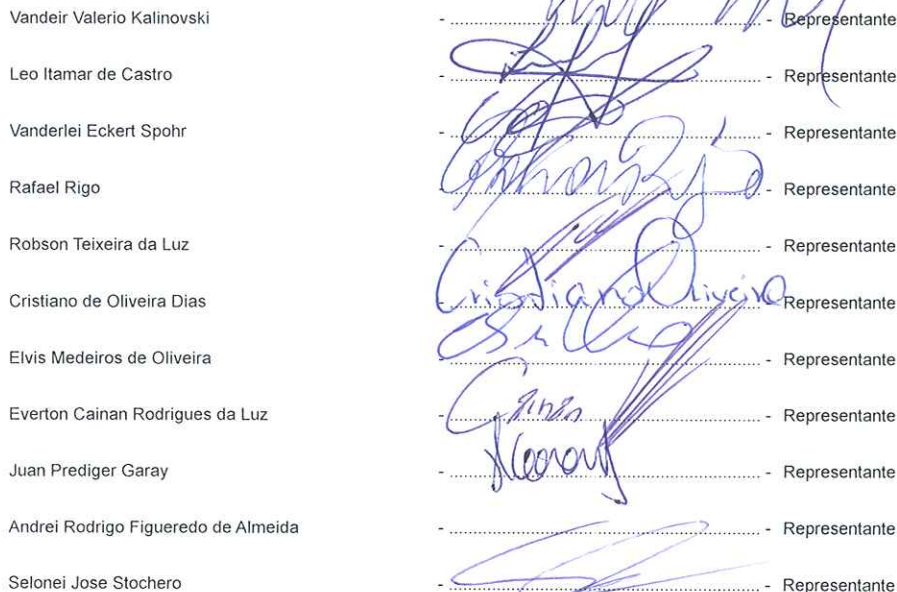 Vandeir Valerio Kalinovski - ........................................ - Representante
Leo Itamar de Castro - ........................................ - Representante
Vanderlei Eckert Spohr - ........................................ - Representante
Rafael Rigo - ........................................ - Representante
Robson Teixeira da Luz - ........................................ - Representante
Cristiano de Oliveira Dias - Cristiano Oliveira - Representante
Elvis Medeiros de Oliveira - ........................................ - Representante
Everton Cainan Rodrigues da Luz - Cainan - Representante
Juan Prediger Garay - ........................................ - Representante
Andrei Rodrigo Figueredo de Almeida - ........................................ - Representante
Selonei Jose Stochero - ........................................ - Representante